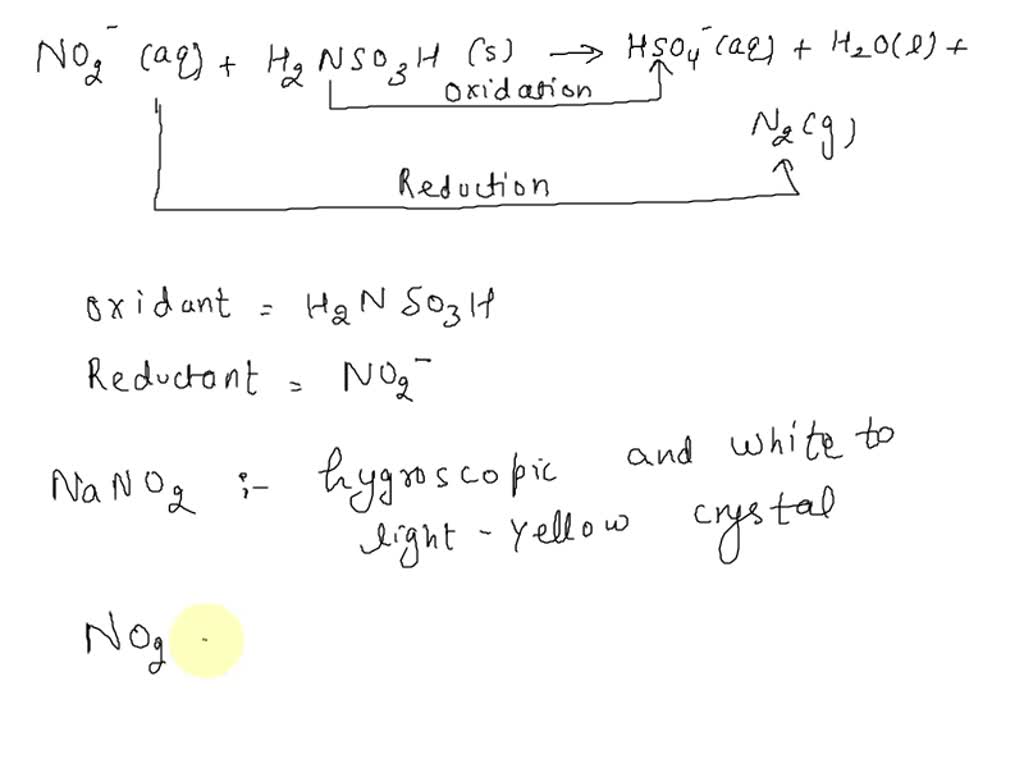 NO₂⁻ (aq) + H₂NSO₃H (s) → HSO₄⁻ (aq) + H₂O(l) +
N₂(g)
Oxidation
Reduction
Oxidant = H₂NSO₃H
Reductant = NO₂⁻
NaNO₂ :- hygroscopic and white to
light - yellow crystal
NO₂